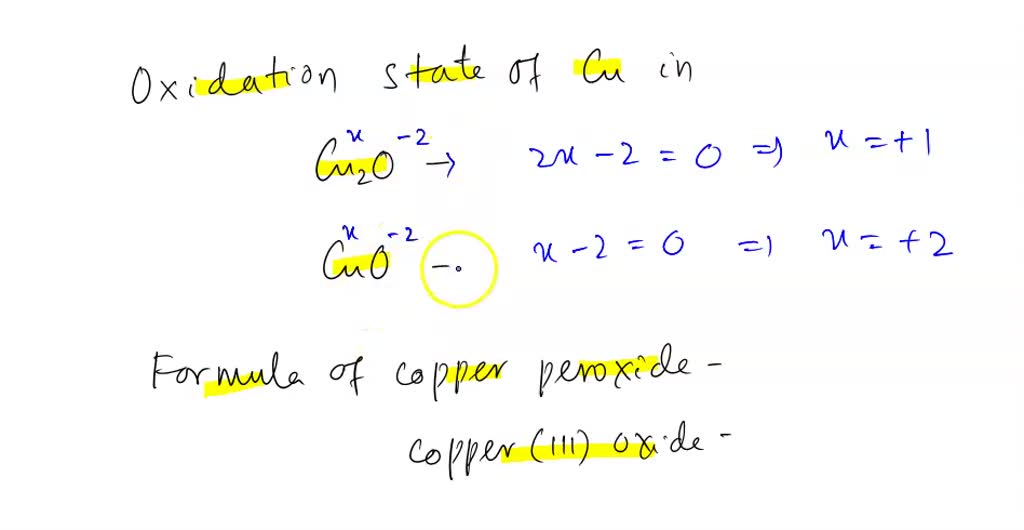 Oxidation state of Cu in
x -2
Cu₂O → 2x - 2 = 0 ⇒ x = +1
x -2
CuO - x - 2 = 0 ⇒ x = +2
Formula of copper peroxide -
copper (III) oxide -